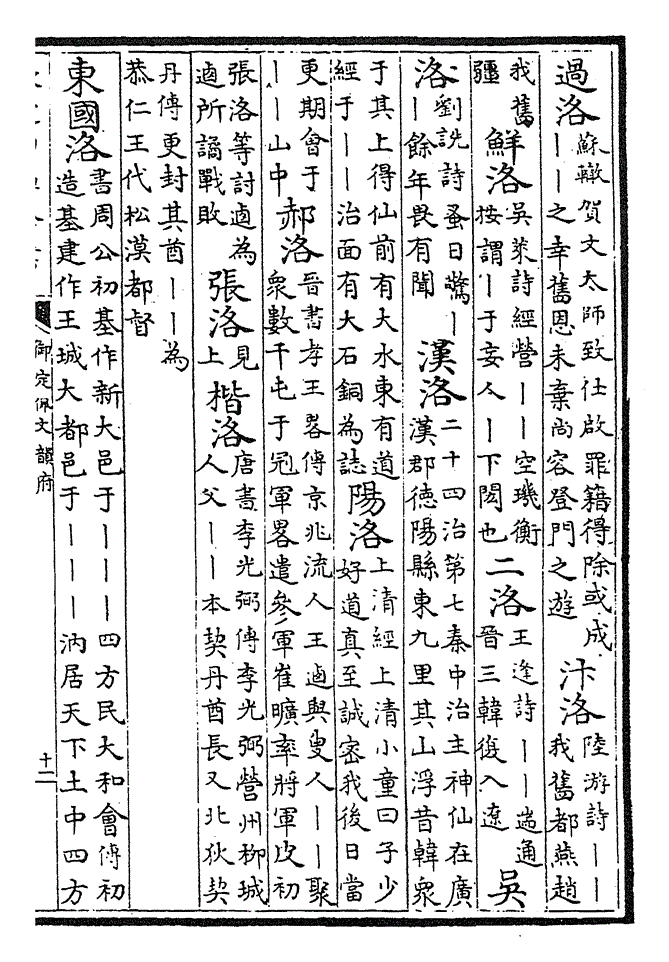 過洛
蘇轍賀文太師致仕啟罪籍得除或成
丨丨之幸舊恩未棄尚容登門之遊
汴洛
陸游詩丨丨
我舊都燕趙
我舊
疆
鮮洛
吳萊詩經營丨丨空璣衡
按謂丨于妄人丨下閎也
二洛
王逢詩丨丨耑通
晉三韓後入遼
吳
洛
劉詵詩蚤日驚丨
丨餘年畏有聞
漢洛
二十四治第七秦中治主神仙在廣
漢郡德陽縣東九里其山浮昔韓衆
于其上得仙前有大水東有道
經于丨丨治面有大石銅為誌
陽洛
上清經上清小童曰子少
好道真至誠密我後日當
更期會于
丨丨山中
郝洛
晉書孝王畧傳京兆流人王逌與叟人丨丨聚
衆數千屯于冠軍畧遣參軍崔曠率將軍皮初
張洛等討逌為
逌所譎戰敗
張洛
見
上
楷洛
唐書李光弼傳李光弼營州柳城
人父丨丨本契丹酋長又北狄契
丹傳更封其酋丨丨為
恭仁王代松漠都督
東國洛
書周公初基作新大邑于丨丨丨四方民大和會傳初
造基建作王城大都邑于丨丨丨汭居天下土中四方
御定佩文韻府
十二